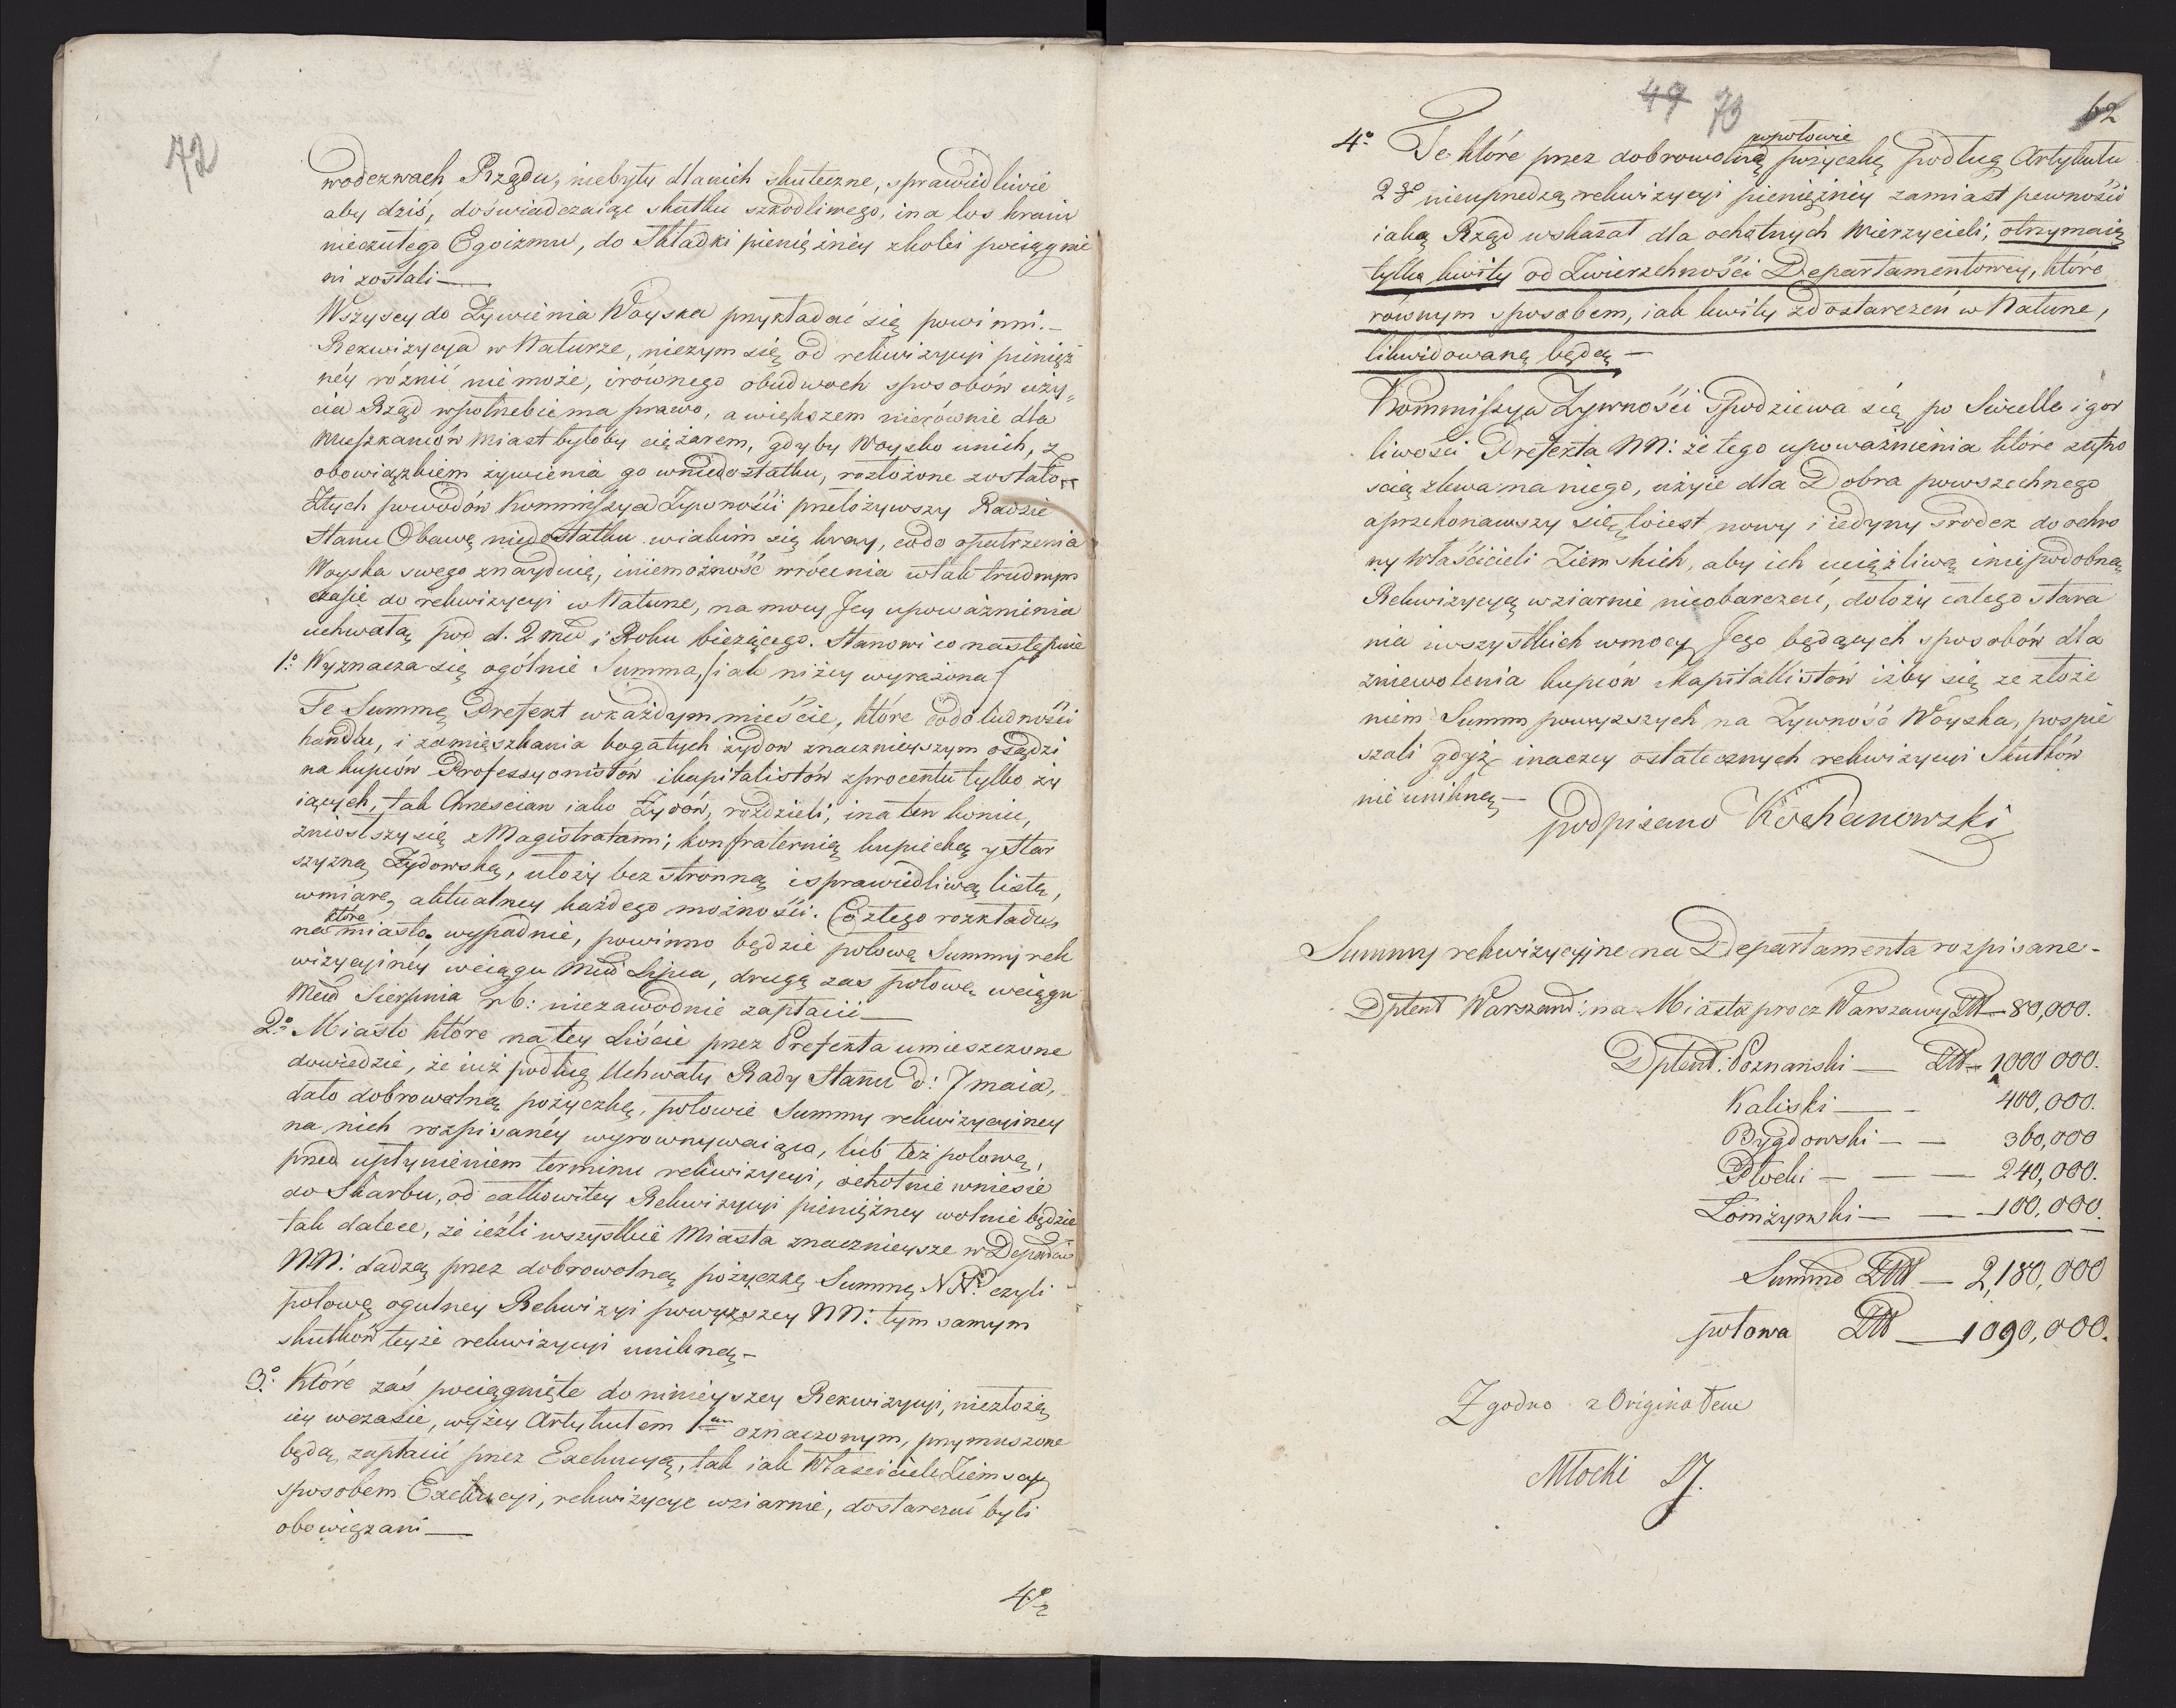 72
wodezwach Rządu, niebyły dlanich skuteczne, sprawiedliwie
aby dziś, doświadczaiąc skutku szkodliwego, ina los kraiu
nieczułego Egoizmu, do Składki pieniężnéy zkolei pociągnie
ni zostali —
Wszyscy do Żywienia Woyska przykładać się powinni. —
Rekwizycya w Naturze, niczym się od rekwizycyi pienięż
néy różnić nie może, irównego obudwoch sposobów uży„
cia Rząd wpotrzebie ma prawo, a większem nierównie dla
Mieszkańców Miast byłoby ciężarem, gdyby Woysko unich, z
obowiązkiem żywienia go wniedostatku, rozłożone zostało
Ztych powodów Kommissya Żywności przełożywszy Radzie
Stanu Obawę niedostatku wiakim się kray, codo opatrzenia
Woyska swego znayduie, iniemożność wrócenia wtak trudnym
czasie do rekwizycyi w Naturze, na mocy Jey upoważnienia
uchwałą pod d. 2 mca i Roku bieżącego. Stanowi co następuie
1º Wyznacza się ogólnie Summa, /: iak niżey wyrażona /
Te Summę Prefekt wkażdym mieście, które codo ludności
handlu, i zamięszkania bogatych żydow znacznieyszym osądzi
na kupców Professyonistów ikapitalistów zprocentu tylko ży
iących, tak Chrzescian iako Żydów, rozdzieli, ina ten koniec,
zniosłszy się z Magistratami; konfraternią kupiecką y Star
szyzną Żydowską, ułoży bezstronną isprawiedliwą listę,
wmiarę aktualney każdego możności. Co ztego rozkładu
które
na miasto wypadnie, powinno będzie połowę Summy rek
wizycyinéy wciągu Mca Lipca, drugą zas połowę wciągu
Mca Sierpnia r b: niezawodnie zapłacić —
2º Miasto które na tey Liście przez Prefekta umieszczone
dowiedzie, że iuż podług Uchwały Rady Stanu d: 7 maia,
dało dobrowolną pożyczkę, połowie Summy rekwizycyiney
na nich rozpisanéy wyrownywaiąca, lub też połowę,
przed upłynieniem terminu rekwizycyi, ochotnie wniesie
do Skarbu, od całkowitey Rekwizycyi pieniężney wolnie będzie
tak dalece, że ieżli wszystkie Miasta znacznieysze w Depar̃cie
NN: dadzą przez dobrowolną pożyczkę Summę NN: czyli
połowę ogulney Rekwizyi powyższey NN: tym samym
skutków teyże rekwizycyi unikną —
3º Które zaś pociągnięte do ninieyszey Rekwizycyi, niezłożą
iey wczasie, wyżey Artykułem 1m oznaczonym, przymuszone
będą zapłacić przez Exekucyą, tak iak Właściciele Ziemscy
sposobem Exekucyi, rekwizycye wziarnie, dostarczać byli
obowiązani —
4º
49 73
62
4º Te które przez dobrowolną pożyczkę podług Artykułu
wpołowie
2go nieuprzedzą rekwizycyi pieniężney zamiast pewności
iaką Rząd wskazał dla ochętnych Wierzycieli, otrzymaią
tylko kwity od Zwierzchności Departamentowey, które
równym sposobem, iak kwity zdostarczeń w Naturze,
likwidowane będą —
Kommissya Żywności Spodziewa się po Światle i gor
liwości Prefekta NN: że tego upoważnienia które zufno
scią zlewa na niego, użyie dla Dobra powszechnego
aprzekonawszy się, toiest nowy i iedyny srodek do ochro
ny Właścicieli Ziemskich, aby ich uciążliwą iniepodobną
Rekwizycyą wziarnie nieobarczać, dołoży całego stara
nia iwszystkich wmocy Jego będących sposobów dla
zniewolenia kupców Kapitallistów iżby się ze złoże
niem Summ powyższych na Żywność Woyska, pospie
szali gdyż inaczey ostatecznych rekwizycyi Skutków
nie unikną —
podpisano Kochanowski
Summy rekwizycyjne na Departamenta rozpisane -
Dptent Warszaw: na Miasta procz Warszawy Złł — 80,000.
Dptent: Poznanski — Złł — 1000 000.
Kaliski — - 400,000.
Bygdowski — — 360,000
Płocki — — — 240,000.
Łomżynski — — 100,000.
Summa Złł — 2,180,000
połowa Złł — 1090,000.
Zgodno z Originałem
Młocki SJ.